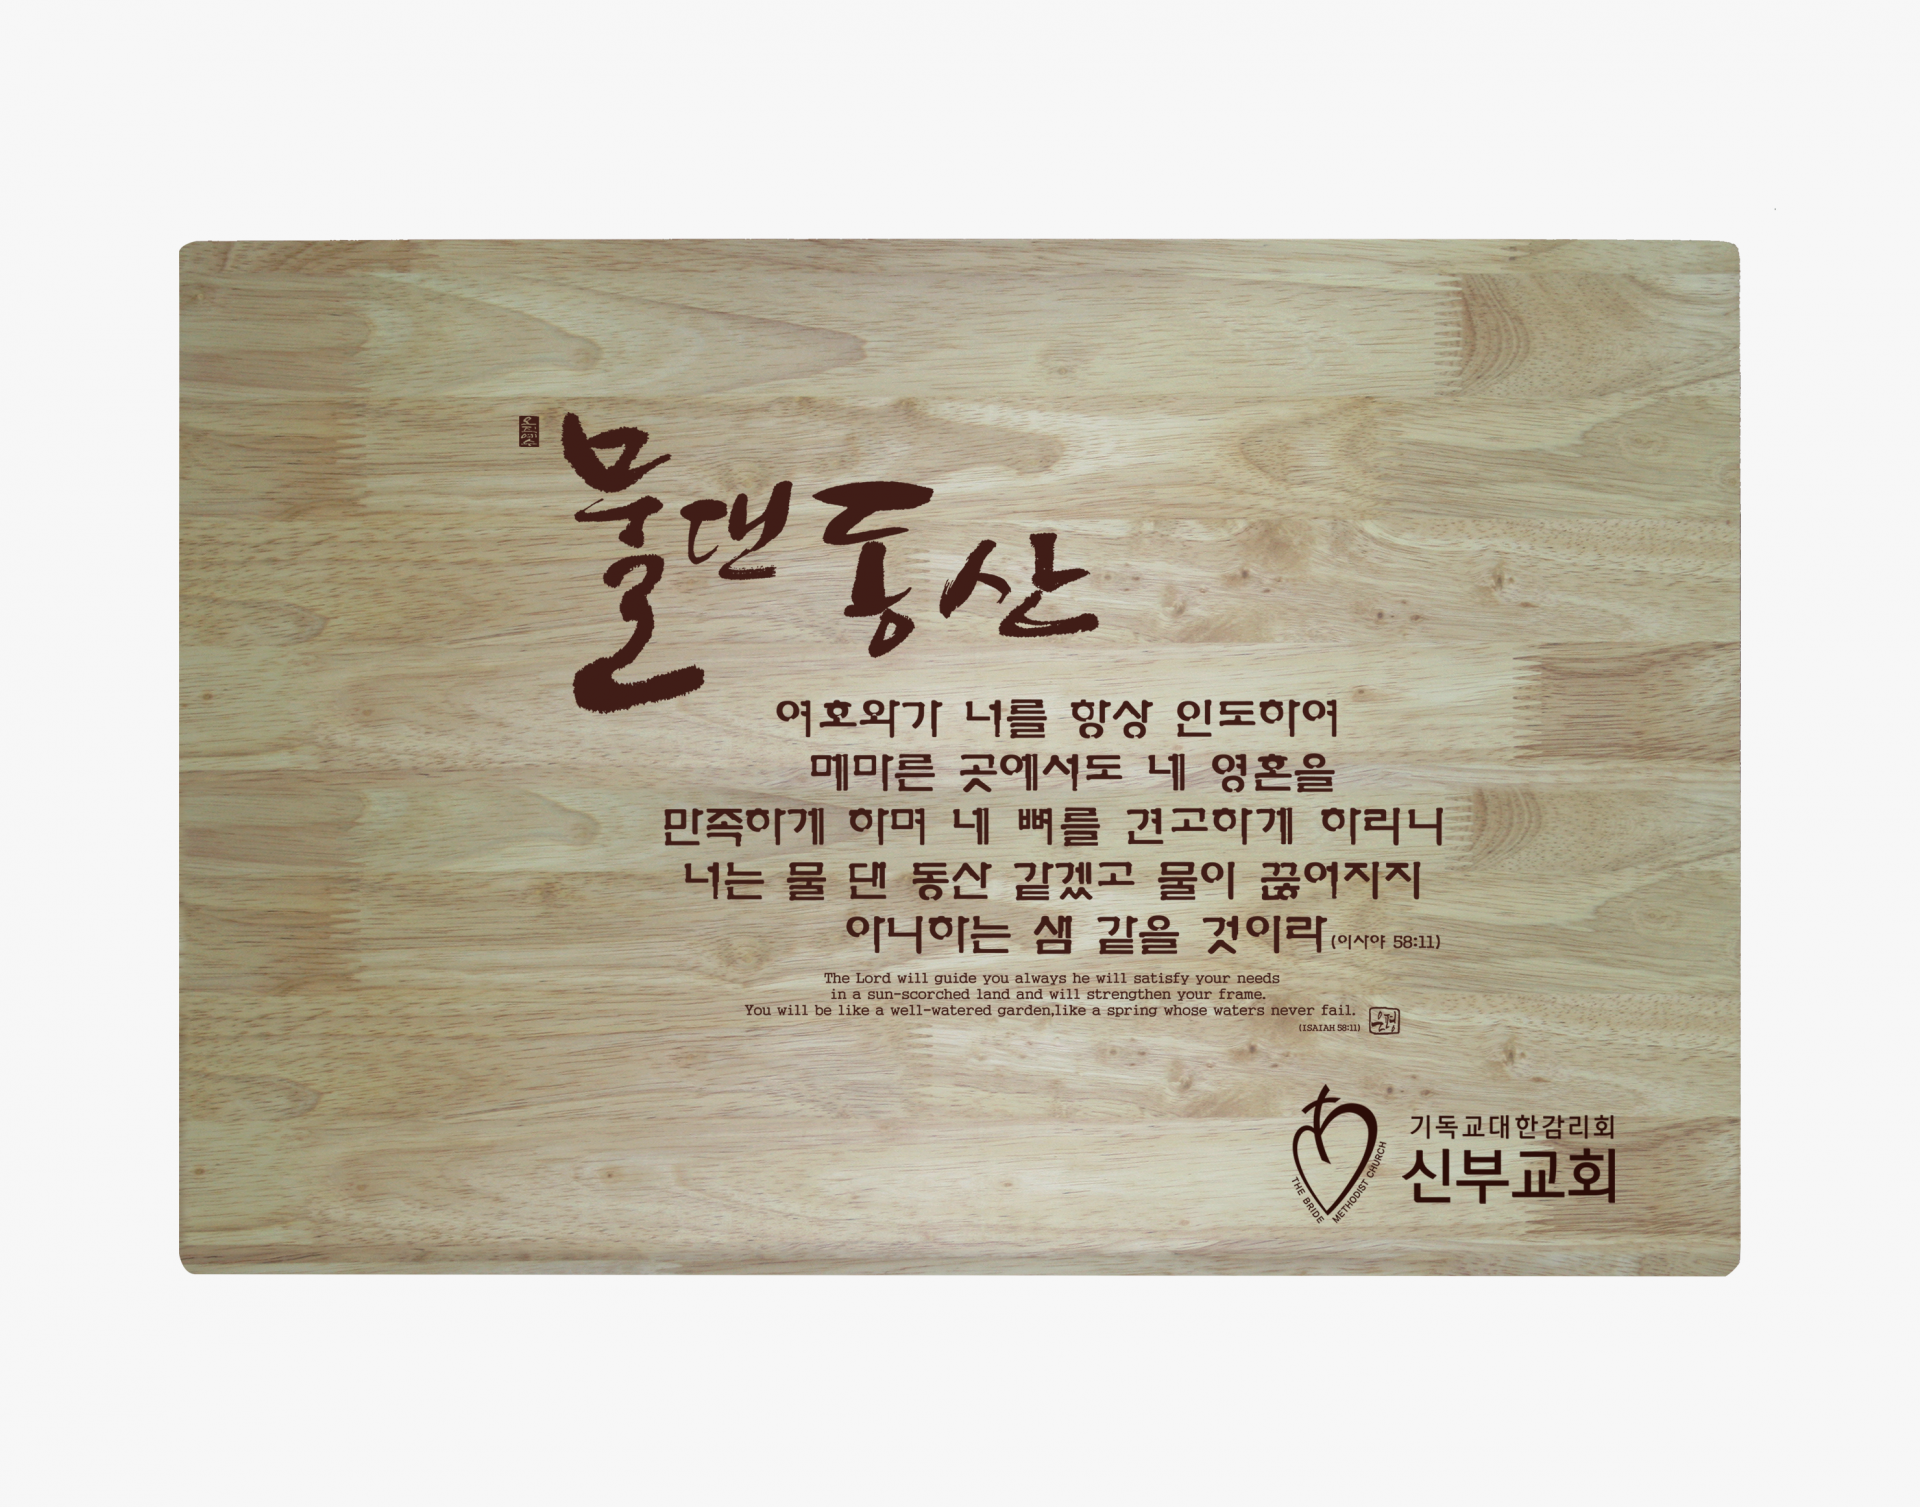 오직예수
물댄동산
여호와가 너를 항상 인도하여
메마른 곳에서도 네 영혼을
만족하게 하며 네 뼈를 견고하게 하리니
너는 물 댄 동산 같겠고 물이 끊어지지
아니하는 샘 같을 것이라(이사야 58:11)
The Lord will guide you always he will satisfy your needs
in a sun-scorched land and will strengthen your frame.
You will be like a well-watered garden,like a spring whose waters never fail.
(ISAIAH 58:11)
THE BRIDE METHODIST CHURCH
기독교대한감리회
신부교회